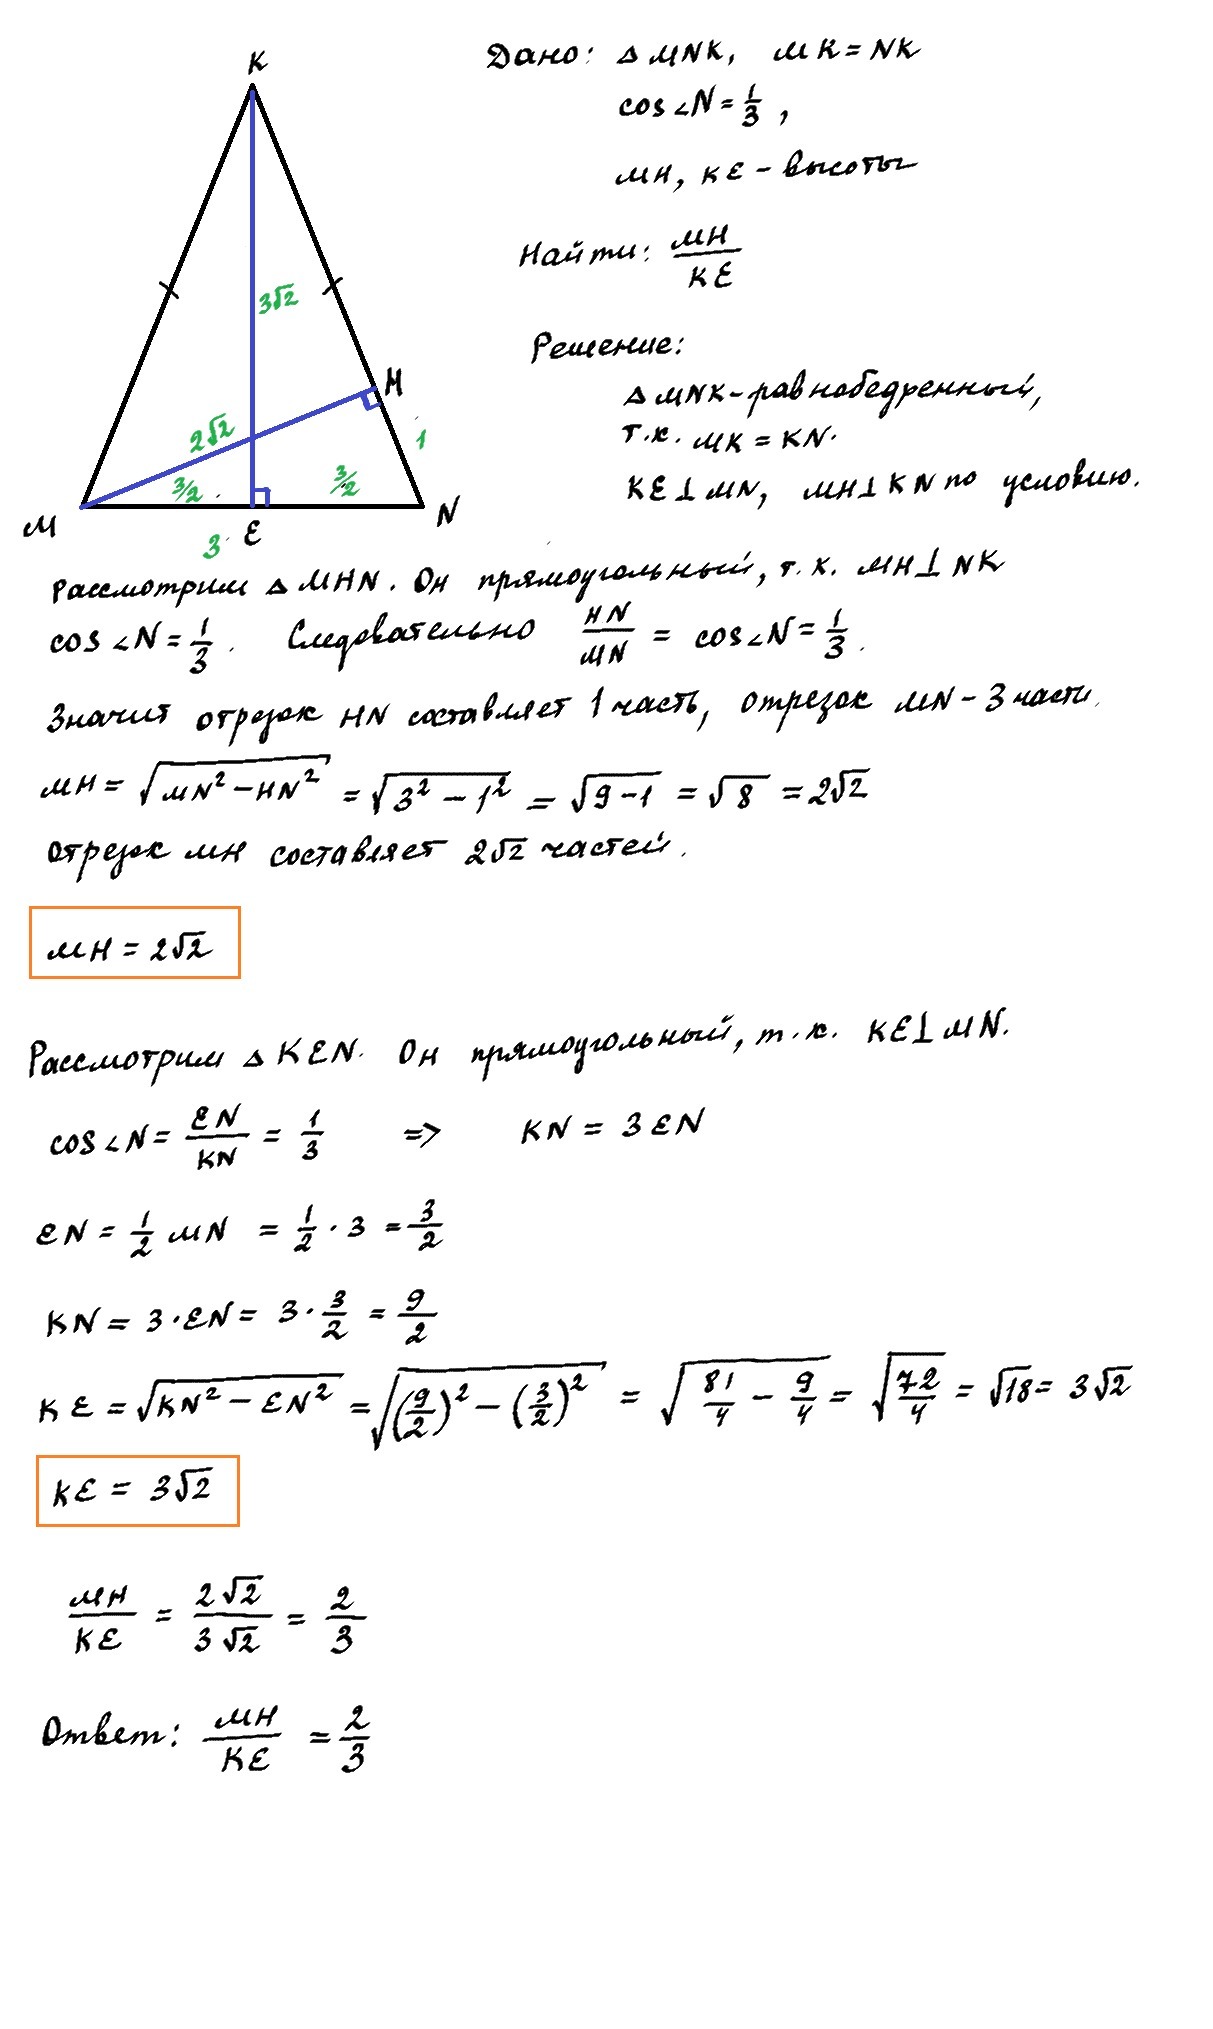 K
Дано: △ MNK, MK = NK
cos ∠N = 1/3 ,
MH, KE - высоты
Найти: MH/KE
3√2
Решение:
H
△ MNK - равнобедренный,
т.к. MK = KN.
2√2
1
3/2
3/2
KE ⊥ MN, MH ⊥ KN по условию.
M
E
N
3
Рассмотрим △ MHN. Он прямоугольный, т.к. MH ⊥ NK
cos ∠N = 1/3. Следовательно HN/MN = cos ∠N = 1/3.
Значит отрезок HN составляет 1 часть, отрезок MN - 3 части.
MH = √(MN² - HN²) = √(3² - 1²) = √(9 - 1) = √8 = 2√2
Отрезок MH составляет 2√2 частей.
MH = 2√2
Рассмотрим △ KEN. Он прямоугольный, т.к. KE ⊥ MN.
cos ∠N = EN/KN = 1/3 => KN = 3EN
EN = 1/2 MN = 1/2 · 3 = 3/2
KN = 3 · EN = 3 · 3/2 = 9/2
KE = √(KN² - EN²) = √((9/2)² - (3/2)²) = √(81/4 - 9/4) = √(72/4) = √18 = 3√2
KE = 3√2
MH/KE = 2√2/3√2 = 2/3
Ответ: MH/KE = 2/3